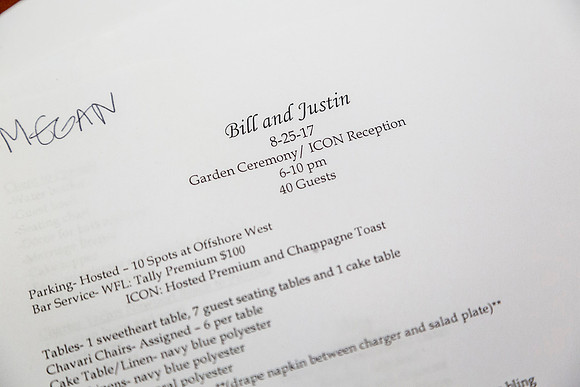 MEGAN
Bill and Justin
8-25-17
Garden Ceremony/ ICON Reception
6-10 pm
40 Guests
Parking- Hosted – 10 Spots at Offshore West
Bar Service- WFL: Tally Premium $100
ICON: Hosted Premium and Champagne Toast
Tables- 1 sweetheart table, 7 guest seating tables and 1 cake table
Chavari Chairs- Assigned – 6 per table
Cake Table/Linen- navy blue polyester
navy blue polyester
polyester
(drape napkin between charger and salad plate)**